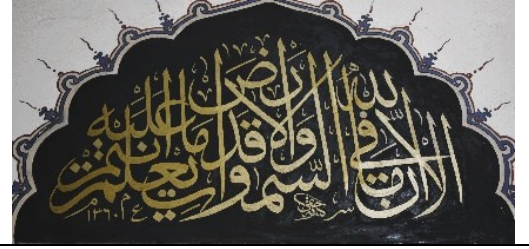 ألا إن لله ما في السموات والأرض قد يعلم ما أنتم عليه
١٣٦٠